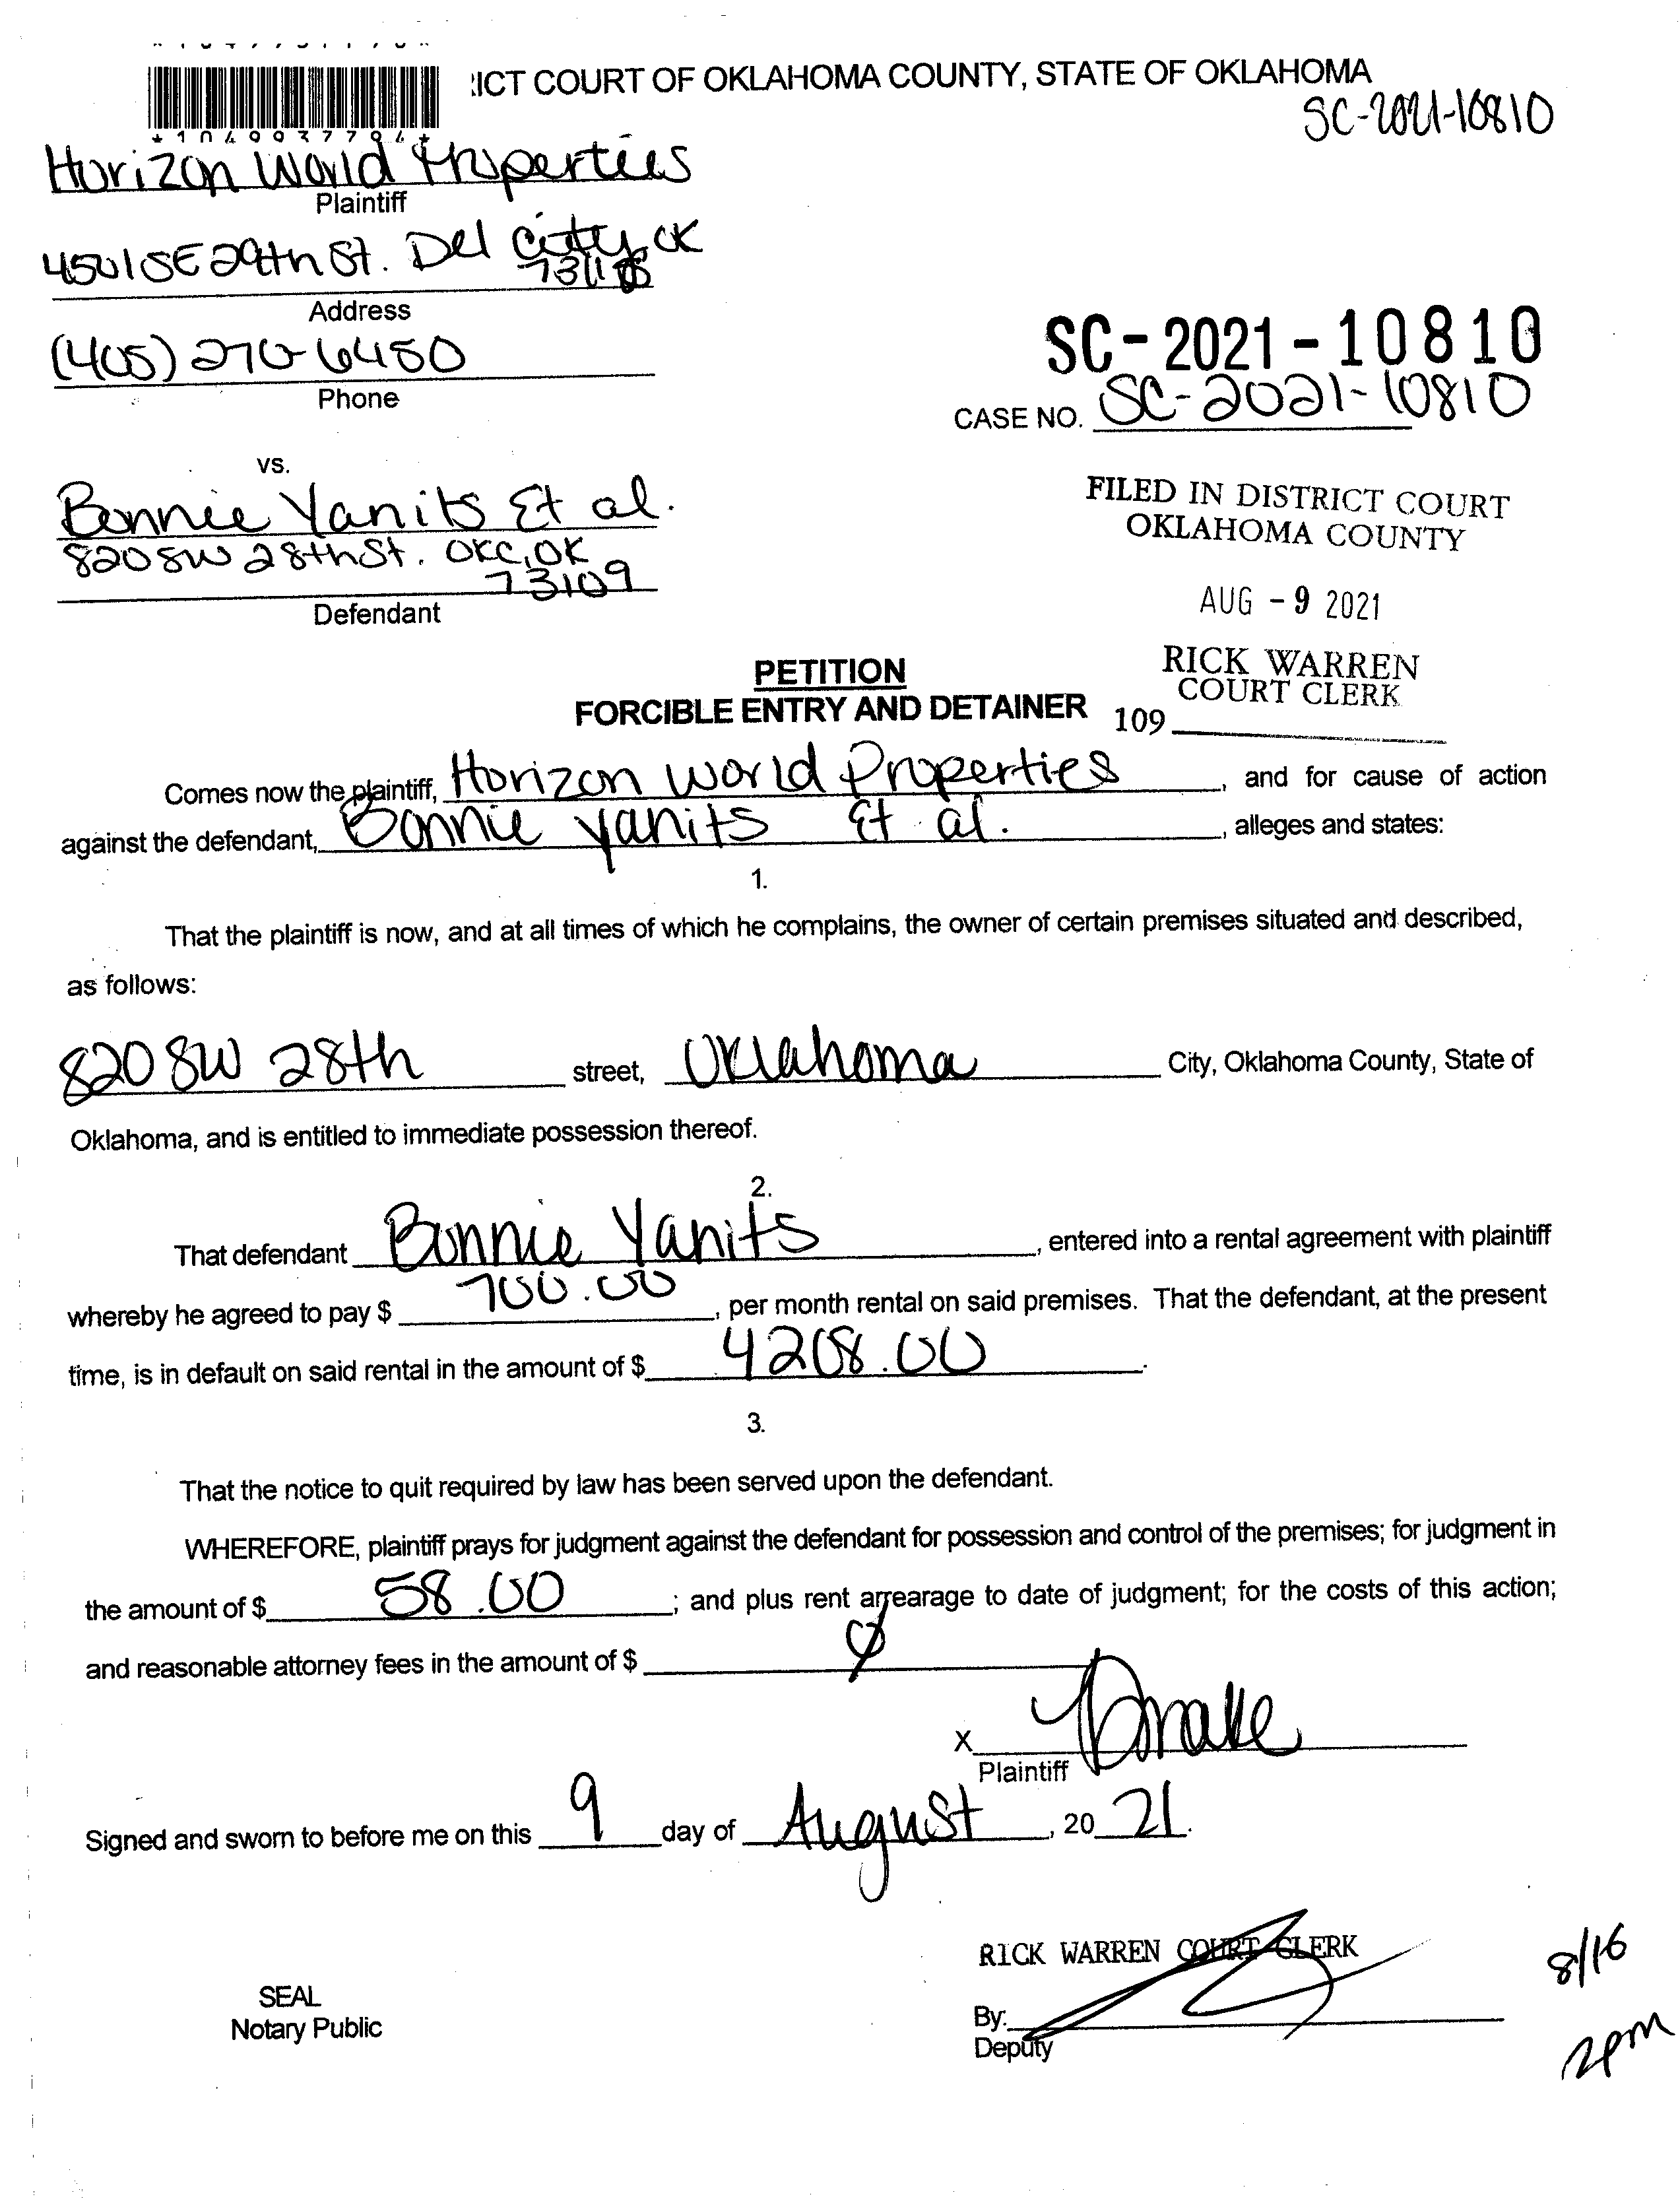 ICT COURT OF OKLAHOMA COUNTY, STATE OF OKLAHOMA
SC-2021-10810
Horizon World Properties
Plaintiff
4501 SE 29th St. Del City, OK
Address
(405) 270-6450
Phone
SC-2021-10810
CASE NO. SC-2021-10810
vs.
Bonnie Yanits Et al.
820 SW 28th St. OKC, OK
73109
Defendant
FILED IN DISTRICT COURT
OKLAHOMA COUNTY
AUG - 9 2021
RICK WARREN
COURT CLERK
109
PETITION
FORCIBLE ENTRY AND DETAINER
Comes now the plaintiff, Horizon World Properties, and for cause of action
against the defendant, Bonnie Yanits Et al., alleges and states:
1.
That the plaintiff is now, and at all times of which he complains, the owner of certain premises situated and described,
as follows:
820 SW 28th street, Oklahoma City, Oklahoma County, State of
Oklahoma, and is entitled to immediate possession thereof.
2.
That defendant Bonnie Yanits, entered into a rental agreement with plaintiff
whereby he agreed to pay $ 700.00, per month rental on said premises. That the defendant, at the present
time, is in default on said rental in the amount of $ 4208.00.
3.
That the notice to quit required by law has been served upon the defendant.
WHEREFORE, plaintiff prays for judgment against the defendant for possession and control of the premises; for judgment in
the amount of $ 58.00; and plus rent arrearage to date of judgment; for the costs of this action;
and reasonable attorney fees in the amount of $
X Drake
Plaintiff
Signed and sworn to before me on this 9 day of August, 20 21.
RICK WARREN COURT CLERK
8/16
SEAL
Notary Public
By:
Deputy
2pm